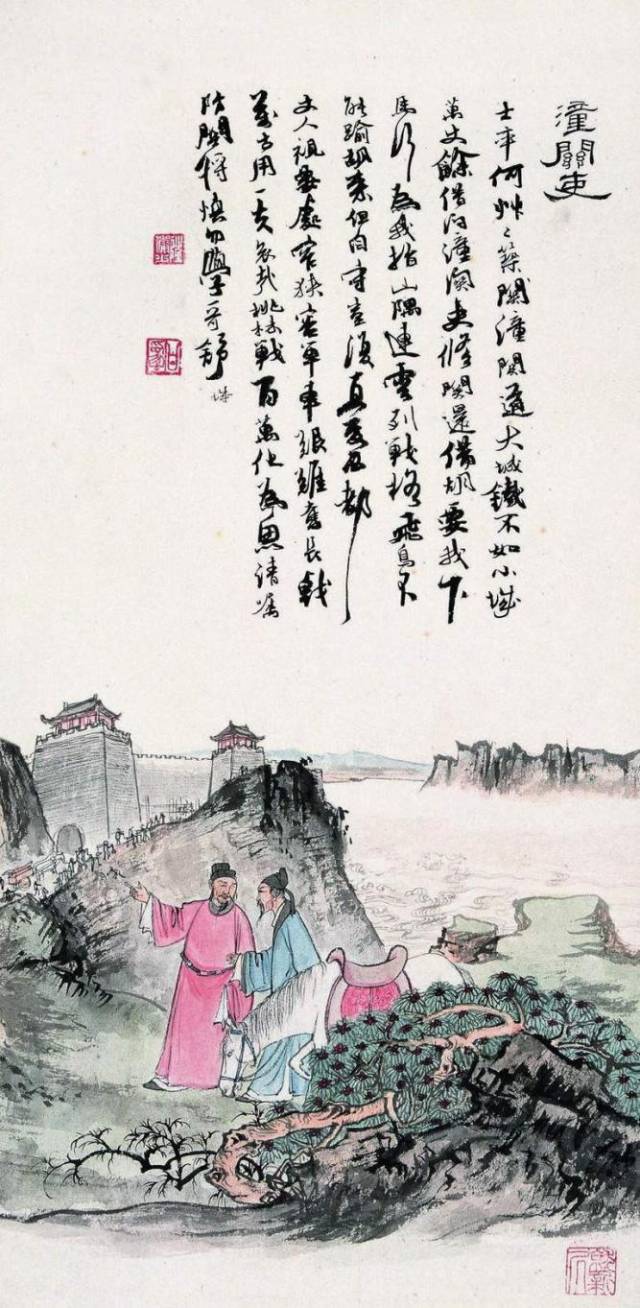 潼關吏
士卒何艸〻築關潼關道大城鐵不如小城
萬丈餘借問潼關吏修關還備胡要我下
馬行為我指山隅連雲列戰格飛鳥不
能踰胡来但自守豈復憂西都
丈人視要處窄狹容單車艱難奮長戟
萬古用一夫哀哉桃林戰百萬化為魚請囑
防關將慎勿學哥舒